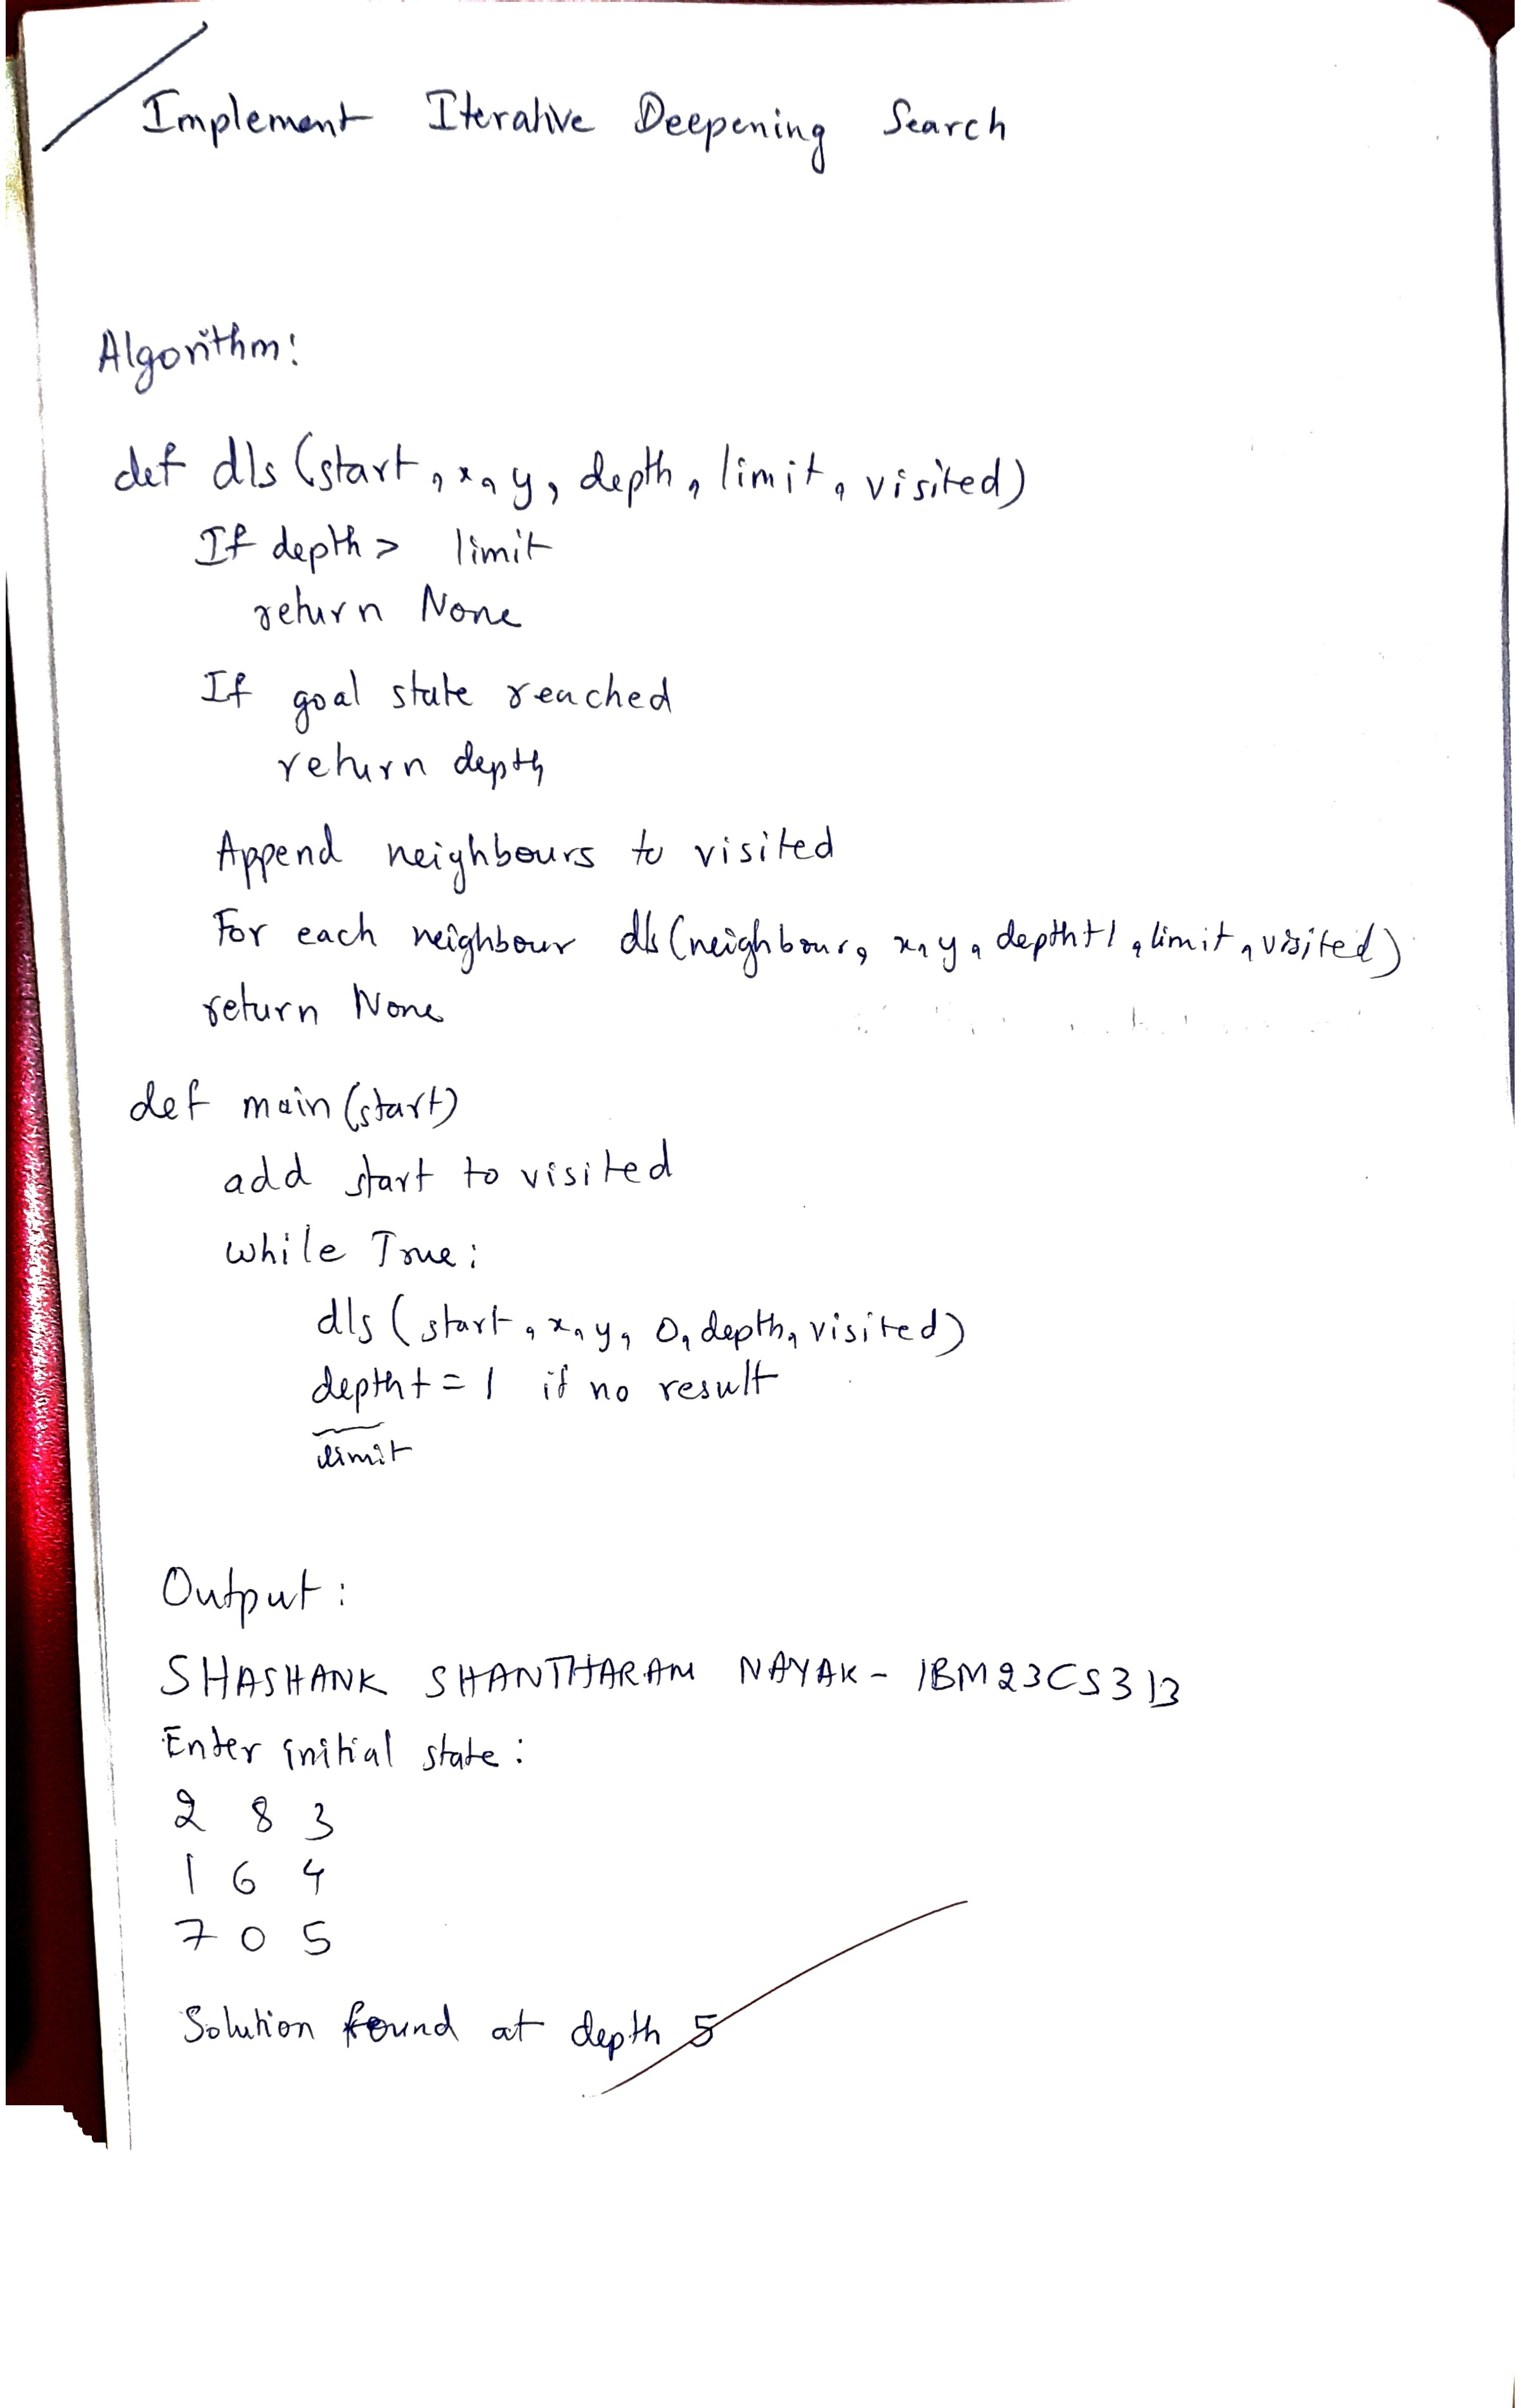 Implement Iterative Deepening Search
Algorithm:
def dls (start, x, y, depth, limit, visited)
If depth > limit
return None
If goal state reached
return depth
Append neighbours to visited
For each neighbour dls (neighbour, x, y, depth+1, limit, visited)
return None
def main (start)
add start to visited
while True:
dls (start, x, y, 0, depth, visited)
depth += 1 if no result
limit
Output:
SHASHANK SHANTHARAM NAYAK - 1BM23CS313
Enter initial state:
2 8 3
1 6 4
7 0 5
Solution found at depth 5